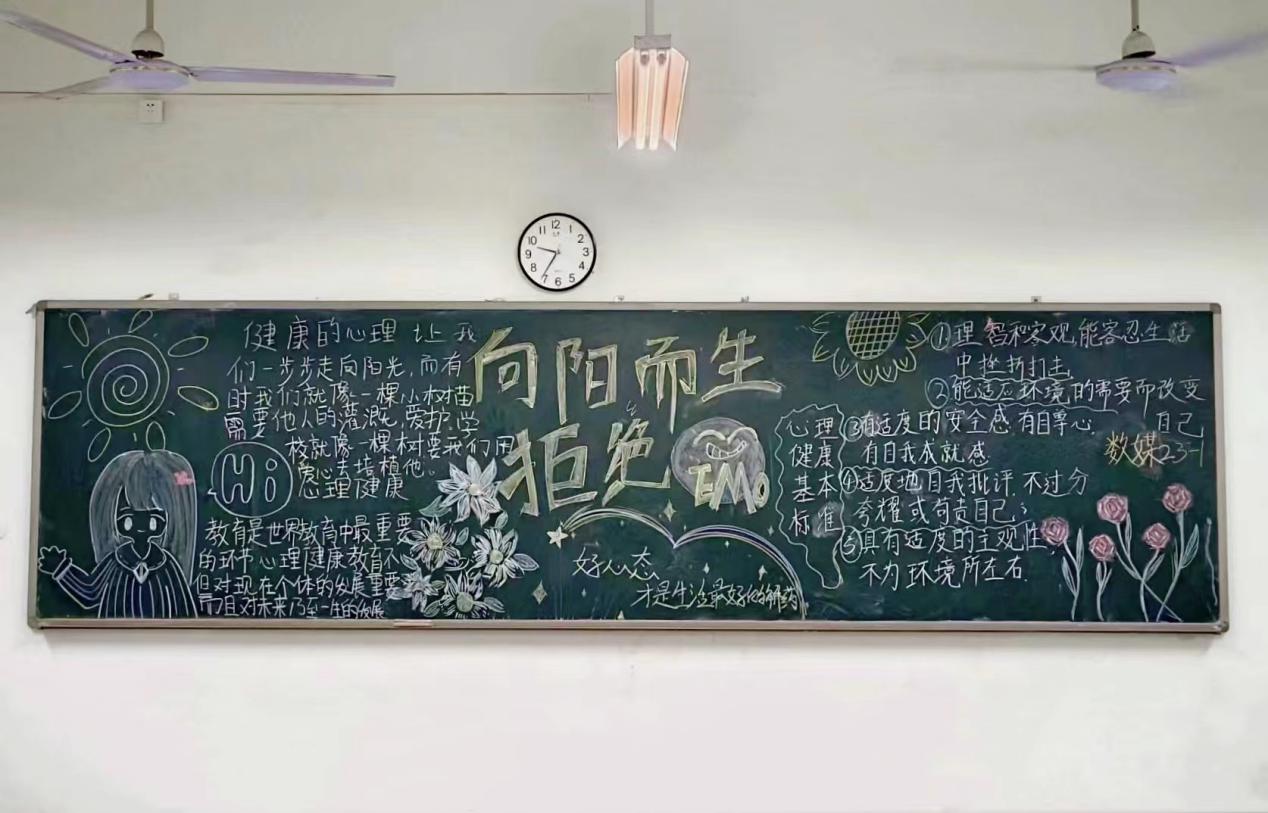 健康的心理让我
们一步步走向阳光,而有
时我们就像一棵小树苗
需要他人的灌溉,爱护.学
校就像一棵树要我们用
爱心去培植他。
心理健康
Hi
教育是世界教育中最重要
的环节心理健康教育不
但对现在个体的发展重要
而且对未来乃至一生的发展
向阳而生
拒绝
EMO
好心态
才是生活最好的解药
心理
健康
基本
标准
①理智和客观,能容忍生活
中挫折打击
②能适应环境的需要而改变
自己
③有适度的安全感有自尊心
有自我成就感
④适度地自我批评,不过分
夸耀或苛责自己;
⑤具有适度的主观性
不为环境所左右.
数媒23-1
12
1
2
3
4
5
6
7
8
9
10
11